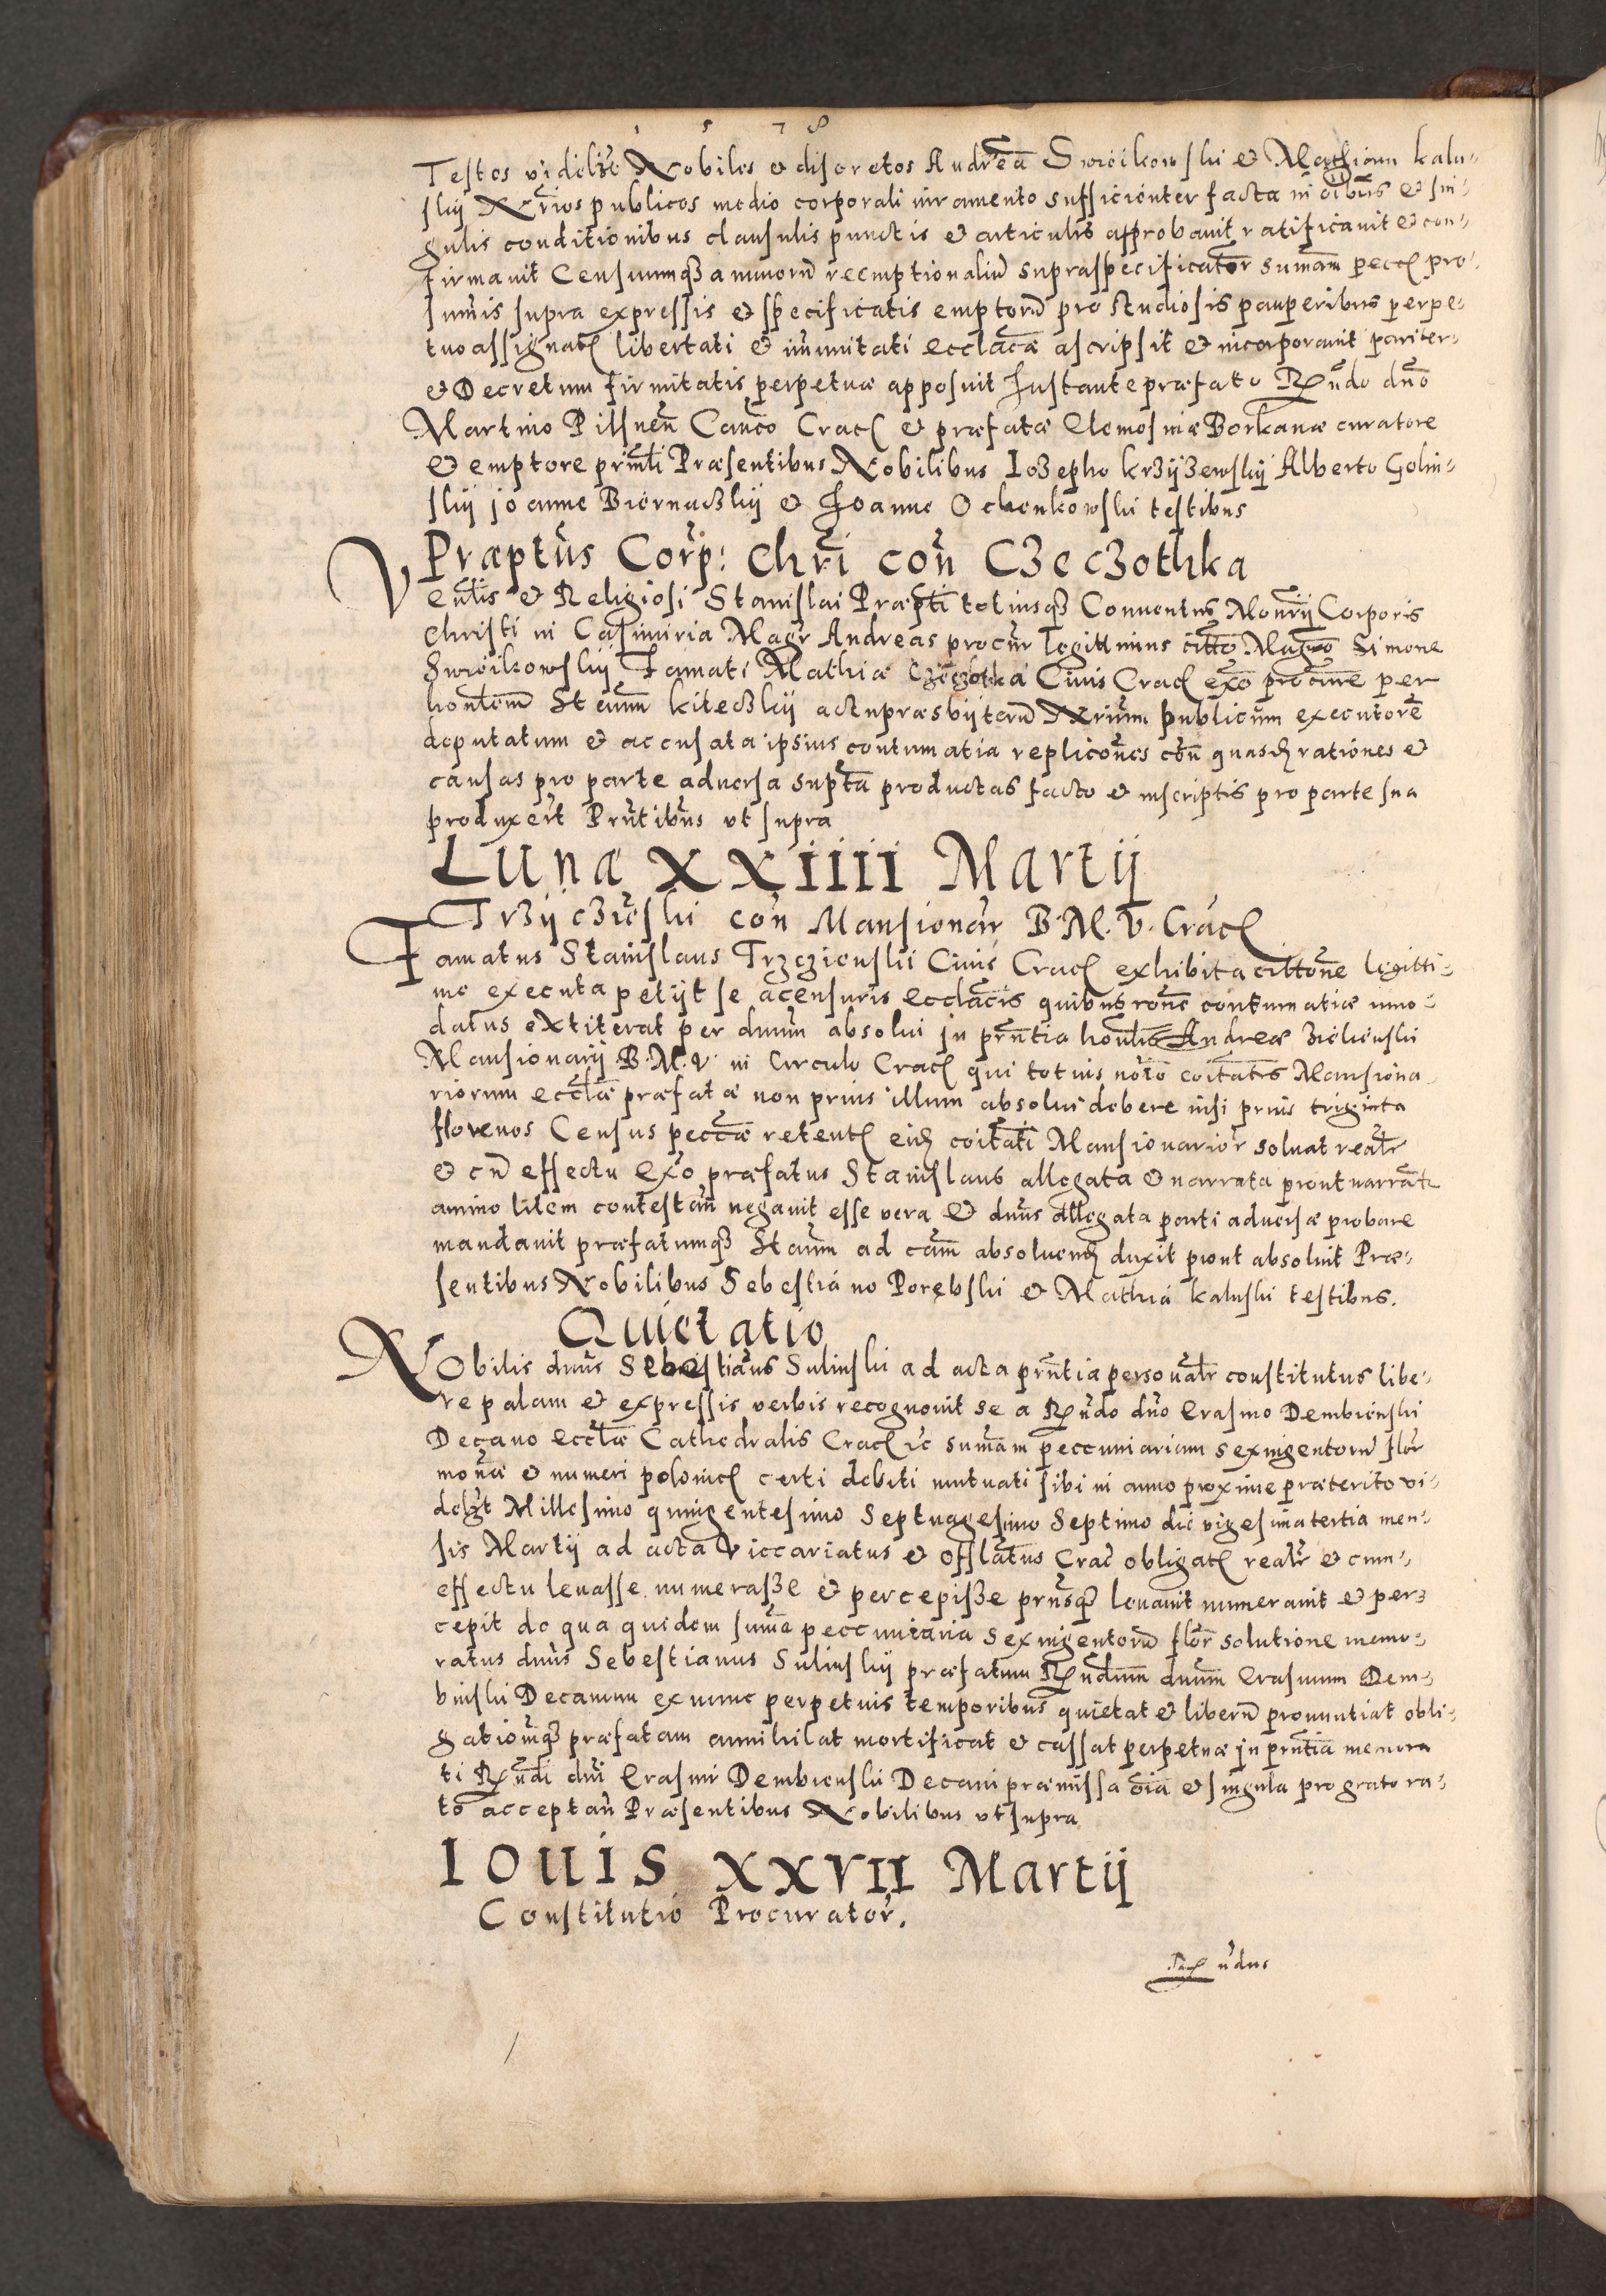 1 5 7 8
Testes videlzt Nobiles et discretos Andream Swoikowski et Mathiam Kalu-
skij Nrios publicos medio corporali iuramento sufficienter facta in oibus et sin-
gulis conditionibus clausulis punctis et articulis approbavit ratificavit et con-
firmavit Censuumq3 annuorum reemptionalium supraspecificator sumam pecc pro
sumis supra expressis et specificatis emptorum pro studiosis pauperibus perpe-
tuo assignat libertati et imunitati ecclacae ascripsit et incorporavit pariter-
et Decretum firmitatis perpetuae apposuit Instante praefato Rndo dno
Martino Pilsnen Canco Crac et praefatae Elemosinae Borkanae curatore
et emptore prinli Praesentibus Nobilibus Iozepho Krzijzewskij Alberto Golin-
skij joanne Biernaczkij et Joanne Ochenkowski testibus
Praeptus Corp: Chri con Czeczothka
Venlis et Religiosi Stanislai Praepti totiusq3 Conventus Monrij Corporis
Christi in Casimiria Magr Andreas procur legittimus citto Magro Simone
Swoikowskij Famati Mathiae Czeczothka Civis Crac exo procure per
honlem Stanum Kiteczkij actu praesbyterum Nrium publicum executore
deputatum et accusata ipsius contumatia replicones con quasd rationes et
causas pro parte adversa supta productas facto et inscriptis pro parte sua
produxert Prntibus ut supra
Luna XXIIII Martij
Trzijczieski con Mansionar B. M. V. Crac
Famatus Stanislaus Trzczienski Civis Crac exhibita cittone legitti-
me executa petijt se a censuris ecclacis quibus rone contumatiae inno-
datus extiterat per dnum absolui in prntia honlis Andreae Zielienski
Mansionarij B. M. V. in Circulo Crac qui totius noio coitatis Mansiona-
riorum ecclae praefatae non prius illum absolui debere nisi prius triginta
florenos Census peccae retent eid coitati Mansionarior solvat realr
et cum effectu Exo praefatus Stanislaus allegata et narrata prout narrat
animo litem contestan negavit esse vera et dnus allegata parti adversae probare
mandavit praefatumq3 Stanum ad cam absoluend duxit prout absoluit Prae-
sentibus Nobilibus Sebestiano Porębski et Mathia Kaluski testibus.
Quietatio
Nobilis dnus Sebestianus Sulinski ad acta prntia personalr constitutus libe-
re palam et expressis verbis recognovit se a Rndo dno Erasmo Dembienski
Decano ecclae Cathedralis Crac &c sumam peccuniariam sexingentorum flor
monae et numeri polonic certi debiti mutuati sibi in anno proxime praeterito vi-
delzt Millesimo quingentesimo Septuagesimo Septimo die vigesimatertia men-
sis Martij ad acta Viccariatus et Offlatus Crac obligat realr et cum-
effectu levasse numerasse et percepisse prnsq3 levavit numeravit et per-
cepit de qua quidem suma peccuniaria sexingentorum flor solutione memo-
ratus dnus Sebestianus Sulinskij praefatum Rndum dnum Erasmum Dem-
binski Decanum ex nunc perpetuis temporibus quietat et liberum pronuntiat obli-
gationq3 praefatam annihilat mortificat et cassat perpetuae in prntia memora
ti Rndi dni Erasmi Dembienski Decani praemissa oia et singula pro grato ra-
to acceptan Praesentibus Nobilibus ut supra
Iovis XXVII Martij
Constitutio Procurator.
Rndus